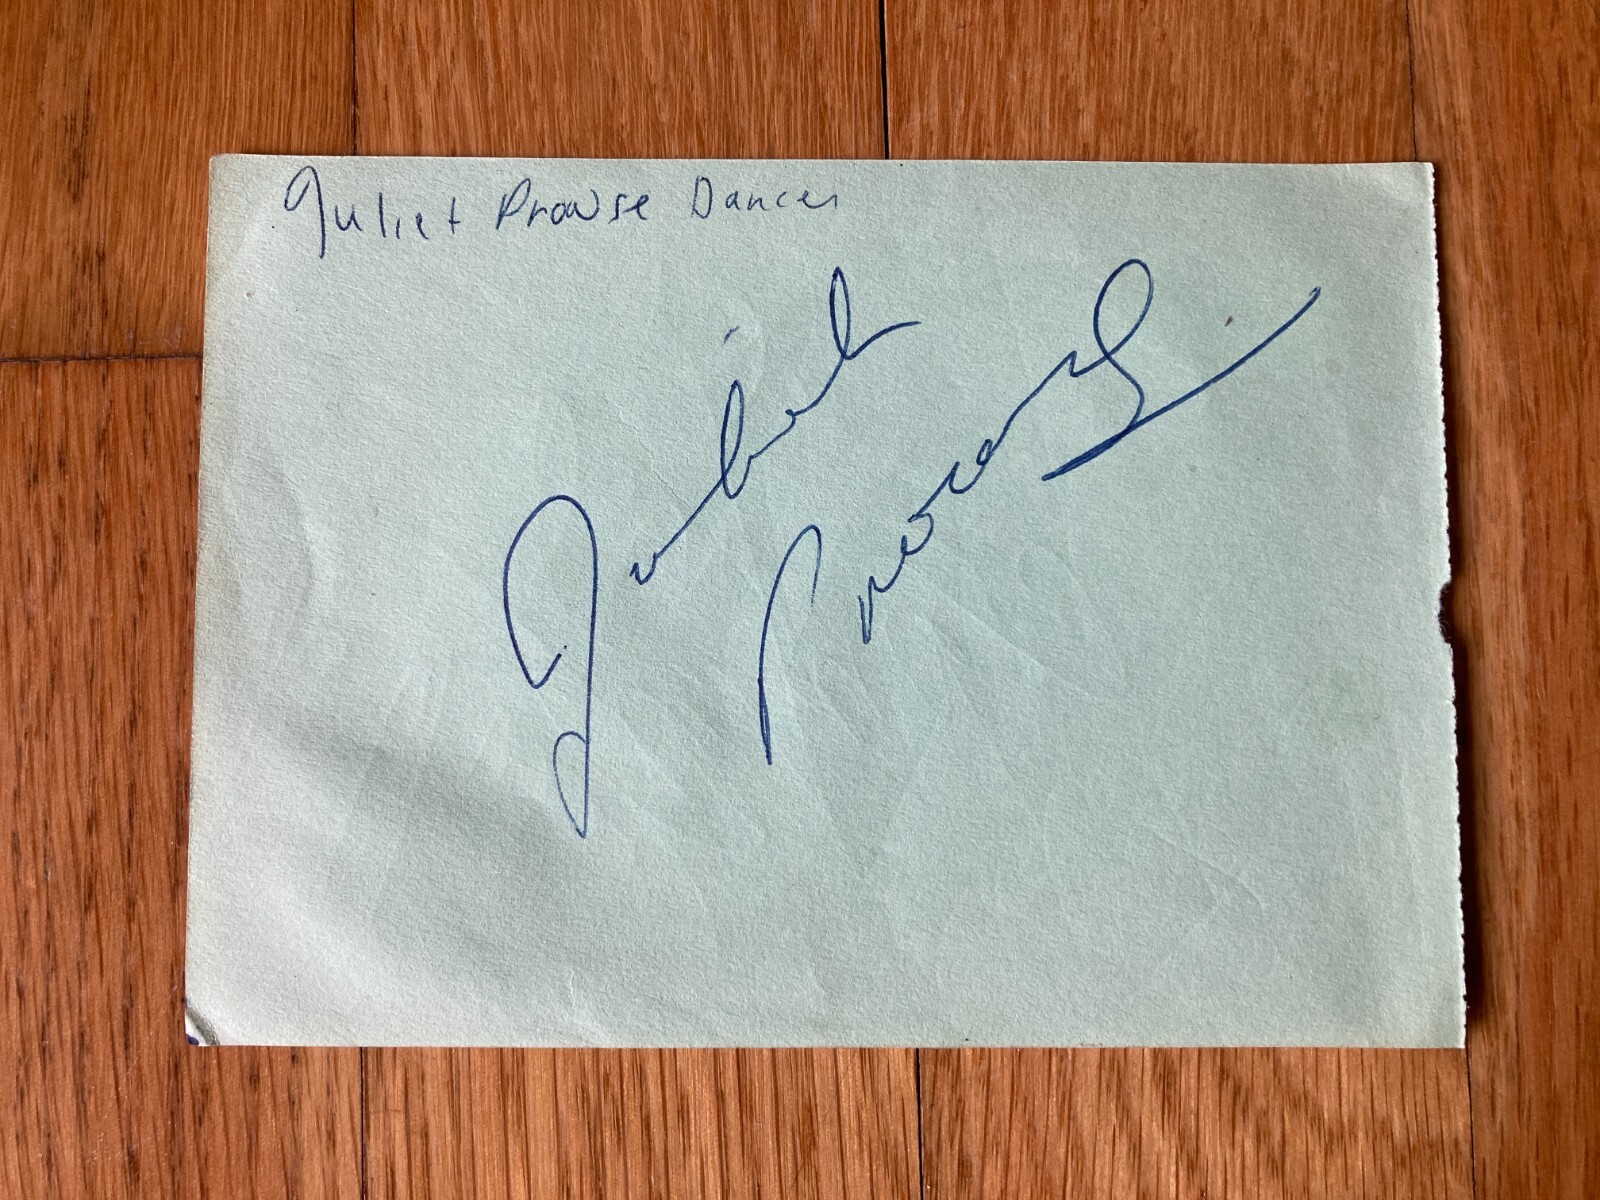 Juliet Prowse Dancer
Juliet
Prowse